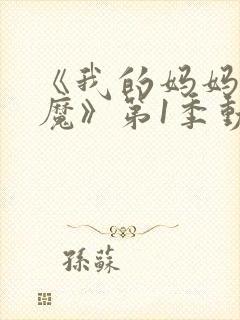 《我的妈妈
魔》第1季動
孫蘇